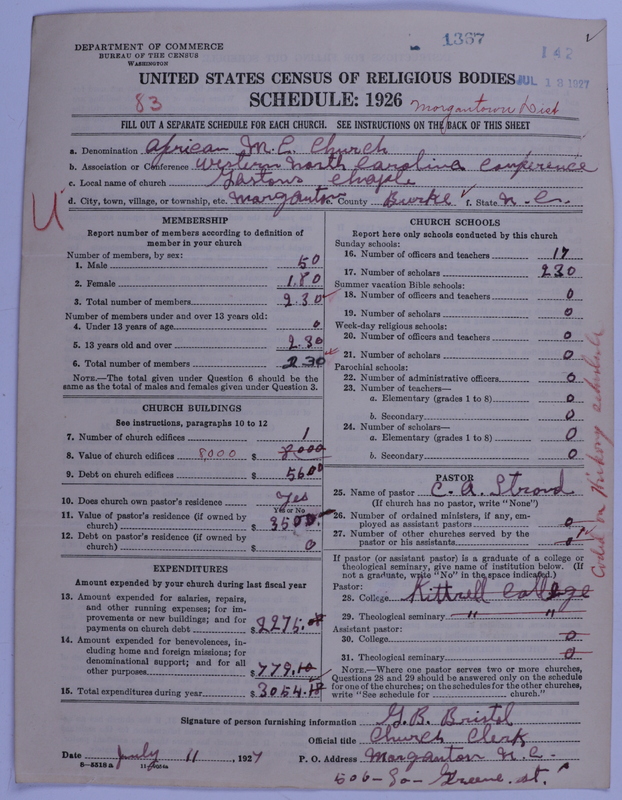 DEPARTMENT OF COMMERCE
BUREAU OF THE CENSUS
WASHINGTON
1367
142
JUL 18 1927
UNITED STATES CENSUS OF RELIGIOUS BODIES
83
SCHEDULE: 1926
Morgantown Dist
FILL OUT A SEPARATE SCHEDULE FOR EACH CHURCH. SEE INSTRUCTIONS ON THE BACK OF THIS SHEET
a. Denomination African M.E. Church
b. Association or Conference Western North Carolina Conference
c. Local name of church Gastons Chaple
d. City, town, village, or township, etc. Morganton County Burke f. State N.C.
U
MEMBERSHIP
Report number of members according to definition of
member in your church
Number of members, by sex:
1. Male 50
2. Female 180
3. Total number of members 230
Number of members under and over 13 years old:
4. Under 13 years of age 0
5. 13 years old and over 230
6. Total number of members 230
NOTE.—The total given under Question 6 should be
same as the total of males and females given under Question 3.
CHURCH BUILDINGS
See instructions, paragraphs 10 to 12
7. Number of church edifices 1
8. Value of church edifices 8,000 $ 8000
9. Debt on church edifices $ 5600
10. Does church own pastor's residence Yes
Yes or No
11. Value of pastor's residence (if owned by
church) $ 3500
12. Debt on pastor's residence (if owned by
church) $ 0
EXPENDITURES
Amount expended by your church during last fiscal year
13. Amount expended for salaries, repairs,
and other running expenses; for im-
provements or new buildings; and for
payments on church debt $ 2275.08
14. Amount expended for benevolences, in-
cluding home and foreign missions; for
denominational support; and for all
other purposes $ 779.10
15. Total expenditures during year $ 3054.18
CHURCH SCHOOLS
Report here only schools conducted by this church
Sunday schools:
16. Number of officers and teachers 17
17. Number of scholars 230
Summer vacation Bible schools:
18. Number of officers and teachers 0
19. Number of scholars 0
Week-day religious schools:
20. Number of officers and teachers 0
21. Number of scholars 0
Parochial schools:
22. Number of administrative officers 0
23. Number of teachers—
a. Elementary (grades 1 to 8) 0
b. Secondary 0
24. Number of scholars—
a. Elementary (grades 1 to 8) 0
b. Secondary 0
PASTOR
25. Name of pastor C. A. Stroud
(If church has no pastor, write "None")
26. Number of ordained ministers, if any, em-
ployed as assistant pastors 0
27. Number of other churches served by the
pastor or his assistants
If pastor (or assistant pastor) is a graduate of a college or
theological seminary, give name of institution below. (If
not a graduate, write "No" in the space indicated.)
Pastor:
28. College Kittrell College
29. Theological seminary " "
Assistant pastor:
30. College 0
31. Theological seminary 0
NOTE.—Where one pastor serves two or more churches,
Questions 28 and 29 should be answered only on the schedule
for one of the churches; on the schedules for the other churches,
write "See schedule for church."
Coded on Hickory schedule
Signature of person furnishing information G.B. Bristol
Official title Church Clerk
Date July 11, 1927 P. O. Address Morganton N.C.
8—5518a
506—So—Greene. st.